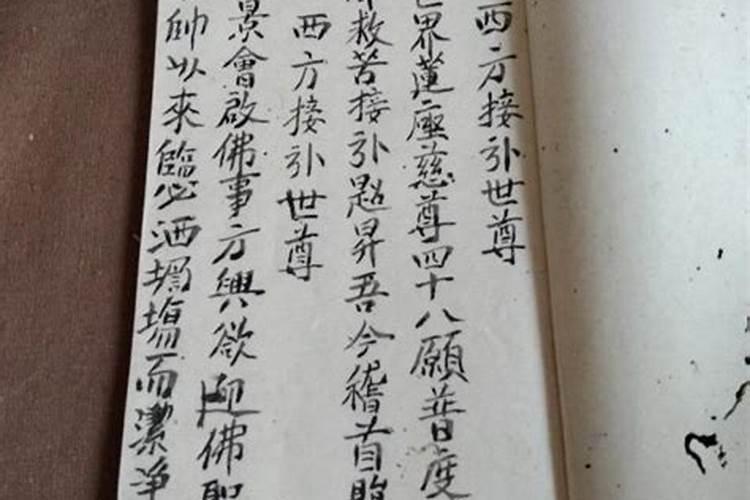 西方接引世尊
世界蓮座慈尊四十八願普度
救苦接引超昇吾今稽首瞻
西方接引世尊
景會啟佛事方興欲迎佛聖
帥以來臨必洒壇塲而潔淨